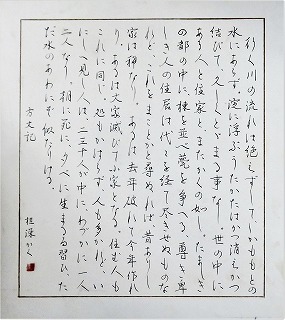 行く川の流れは絶えずして、しかももとの
水にあらず。淀に浮ぶうたかたはかつ消えかつ
結びて、久しくとゞまる事なし。世の中に
ある人と住家と、またかくの如し。たましき
の都の中に、棟を並べ甍を争へる、尊き卑
しき人の住居は、代々を経て尽きせぬものな
れど、これをまことかと尋ぬれば、昔ありし
家は稀なり。あるは去年破れて今年作れ
り、あるは大家滅びて小家となる。住む人も
これに同じ。処もかはらず、人も多かれど、い
にしへ見し人は、二三十人が中に、わづかに一人
二人なり。朝に死に、夕べに生まるる習ひ、た
だ水のあわにぞ似たりける。
方丈記
かく